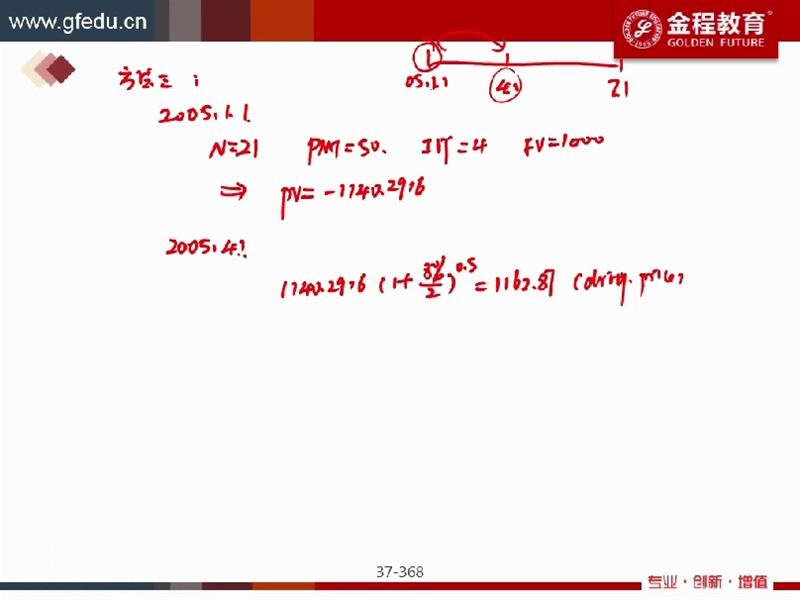 www.gfedu.cn
金程教育®
GOLDEN FUTURE
05.1.1 4.1 21
方法二：
2005.1.1
N=21 PMT=50. I/Y=4 FV=1000
⇒ PV=-1140.2916
2005.4.1
1140.2916 (1+8%/2)^0.5 = 1162.87 (dirty. price)
37-368
专业·创新·增值